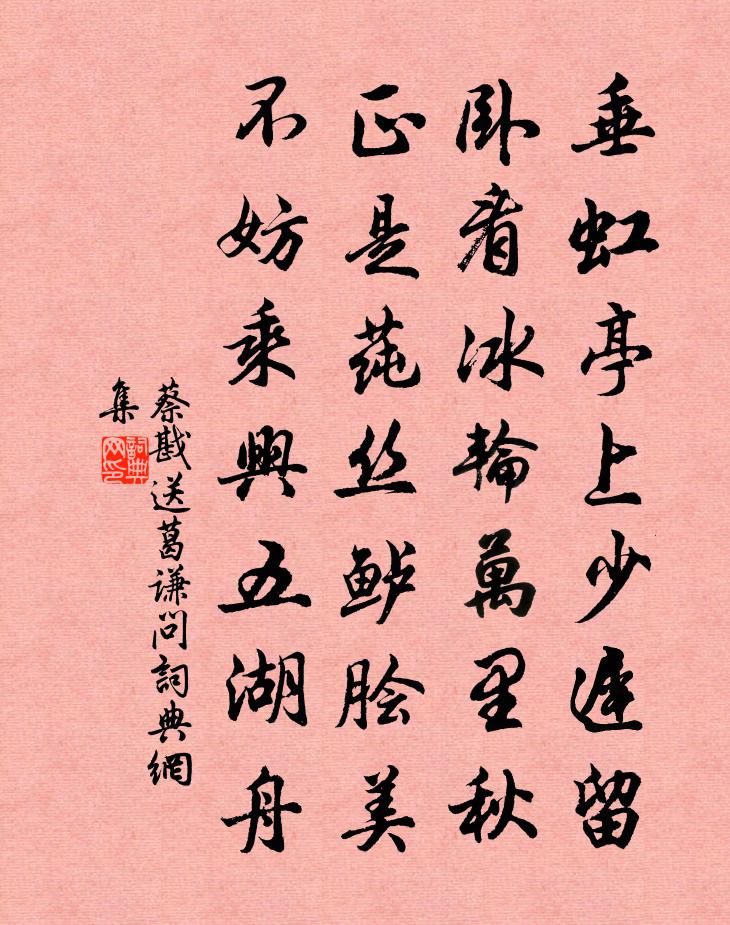 垂虹亭上少遲留
卧看冰輪萬里秋
正是莼丝鲈脍美
不妨乘興五湖舟
蔡戡送葛谦問詞典網
集
詞典
网印